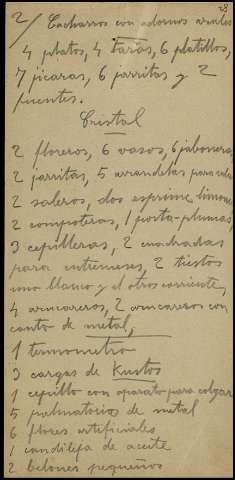 28
2/ Cacharros con adornos azules
4 platos, 4 tazas, 6 platillos,
7 jícaras, 6 jarritas y 2
fuentes.
Cristal
2 floreros, 6 vasos, 6 jaboneras,
2 jarritas, 5 arandelas para velas
2 saleros, dos exprime limones
2 compoteras, 1 porta-plumas,
3 cepilleras, 2 cuadradas
para entremeses, 2 tiestos
uno blanco y el otro corriente,
4 azucareros, 2 azucareros con
canto de metal,
1 termometro
3 cargas de Kustos
1 cepillo con aparato para colgar
5 palmatorios de metal
6 flores artificiales
1 candileja de aceite
2 belones pequeños